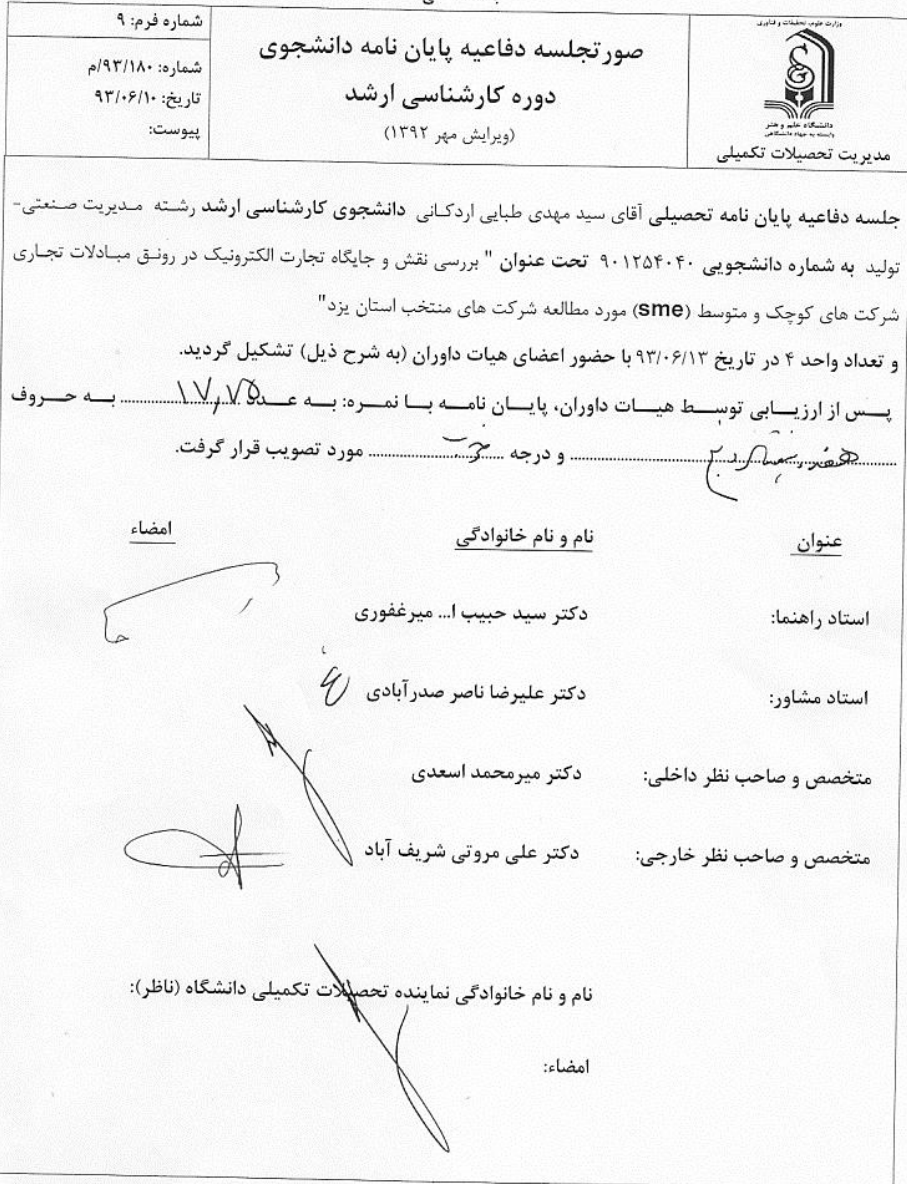 شماره فرم: ۹
شماره: ۹۳/۱۸۰/م
تاریخ: ۹۳/۰۶/۱۰
پیوست:
صورتجلسه دفاعیه پایان نامه دانشجوی
دوره کارشناسی ارشد
(ویرایش مهر ۱۳۹۲)
وزارت علوم، تحقیقات و فناوری
دانشگاه علم و هنر
وابسته به جهاد دانشگاهی
مدیریت تحصیلات تکمیلی
جلسه دفاعیه پایان نامه تحصیلی آقای سید مهدی طبایی اردکانی دانشجوی کارشناسی ارشد رشته مدیریت صنعتی-
تولید به شماره دانشجویی ۹۰۱۲۵۴۰۴۰ تحت عنوان " بررسی نقش و جایگاه تجارت الکترونیک در رونق مبادلات تجاری
شرکت های کوچک و متوسط (sme) مورد مطالعه شرکت های منتخب استان یزد"
و تعداد واحد ۴ در تاریخ ۹۳/۰۶/۱۳ با حضور اعضای هیات داوران (به شرح ذیل) تشکیل گردید.
پس از ارزیابی توسط هیات داوران، پایان نامه با نمره: به عدد ۱۷٫۷۵ به حروف
و درجه مورد تصویب قرار گرفت.
عنوان نام و نام خانوادگی امضاء
استاد راهنما: دکتر سید حبیب ا... میرغفوری
استاد مشاور: دکتر علیرضا ناصر صدرآبادی
متخصص و صاحب نظر داخلی: دکتر میرمحمد اسعدی
متخصص و صاحب نظر خارجی: دکتر علی مروتی شریف آباد
نام و نام خانوادگی نماینده تحصیلات تکمیلی دانشگاه (ناظر):
امضاء: